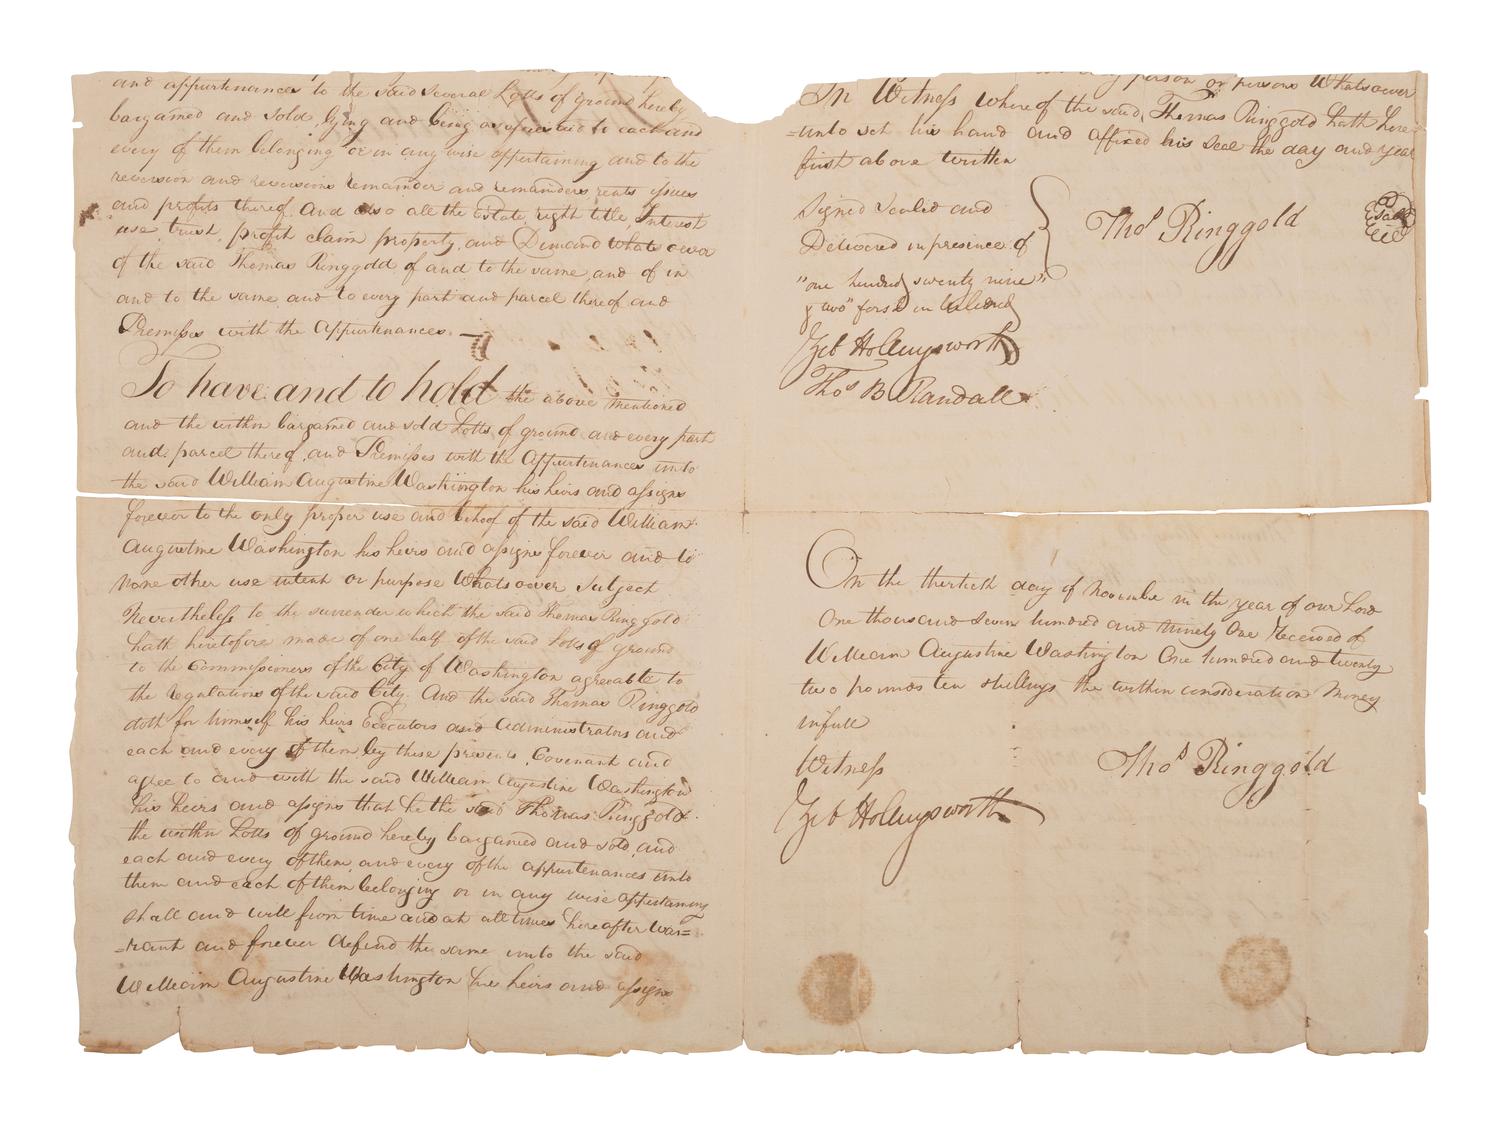 and appurtenances to the said several Lotts of ground hereby
bargained and sold, lying and being or appertaind to each and
every of them belonging or in any wise appertaining and to the
reversion and reversions remainder and remainders rents issues
and profits thereof. And also all the Estate, right title, Interest
use, trust, profit claim property, and Demand whatsoever
of the said Thomas Ringgold of and to the same, and of in
and to the same and to every part and parcel thereof and
Premisses with the Appurtenances. —
To have and to hold the above mentioned
and the within bargained and sold Lotts of ground and every part
and parcel thereof, and Premisses with the Appurtenances unto
the said William Augustine Washington his heirs and assigns
forever to the only proper use and behoof of the said William
Augustine Washington his heirs and assigns forever and to
none other use intent or purpose Whatsoever Subject
Nevertheless to the surrender which the said Thomas Ringgold
hath heretofore made of one half of the said Lotts of ground
to the Commissioners of the City of Washington agreeable to
the regulations of the said City. And the said Thomas Ringgold
doth for himself his heirs Executors and Administrators and
each and every of them by these presents, Covenant and
agree to and with the said William Augustine Washington
his heirs and assigns that he the said Thomas Ringgold
the within Lotts of ground hereby bargained and sold, and
each and every of them, and every of the appurtenances unto
them and each of them belonging or in any wise appertaining
shall and will from time and at all times hereafter War=
=rant and forever defend the same unto the said
William Augustine Washington his heirs and assigns
person or persons Whatsoever
In Witness whereof the said Thomas Ringgold hath here-
=unto set his hand and affixed his seal the day and year
first above written
Signed sealed and
Delivered in presince of
"one hundred twenty nine"
& two" forst in
Zeb Hollingsworth
Thos B Randall
Thos Ringgold
Seal
On the thertieth day of November in the year of our Lord
One thousand Seven hundred and Ninety One Received of
William Augustine Washington One hundred and twenty
two pounds ten shillings the within consideration Money
in full
Witness
Zeb Hollingsworth
Thos Ringgold